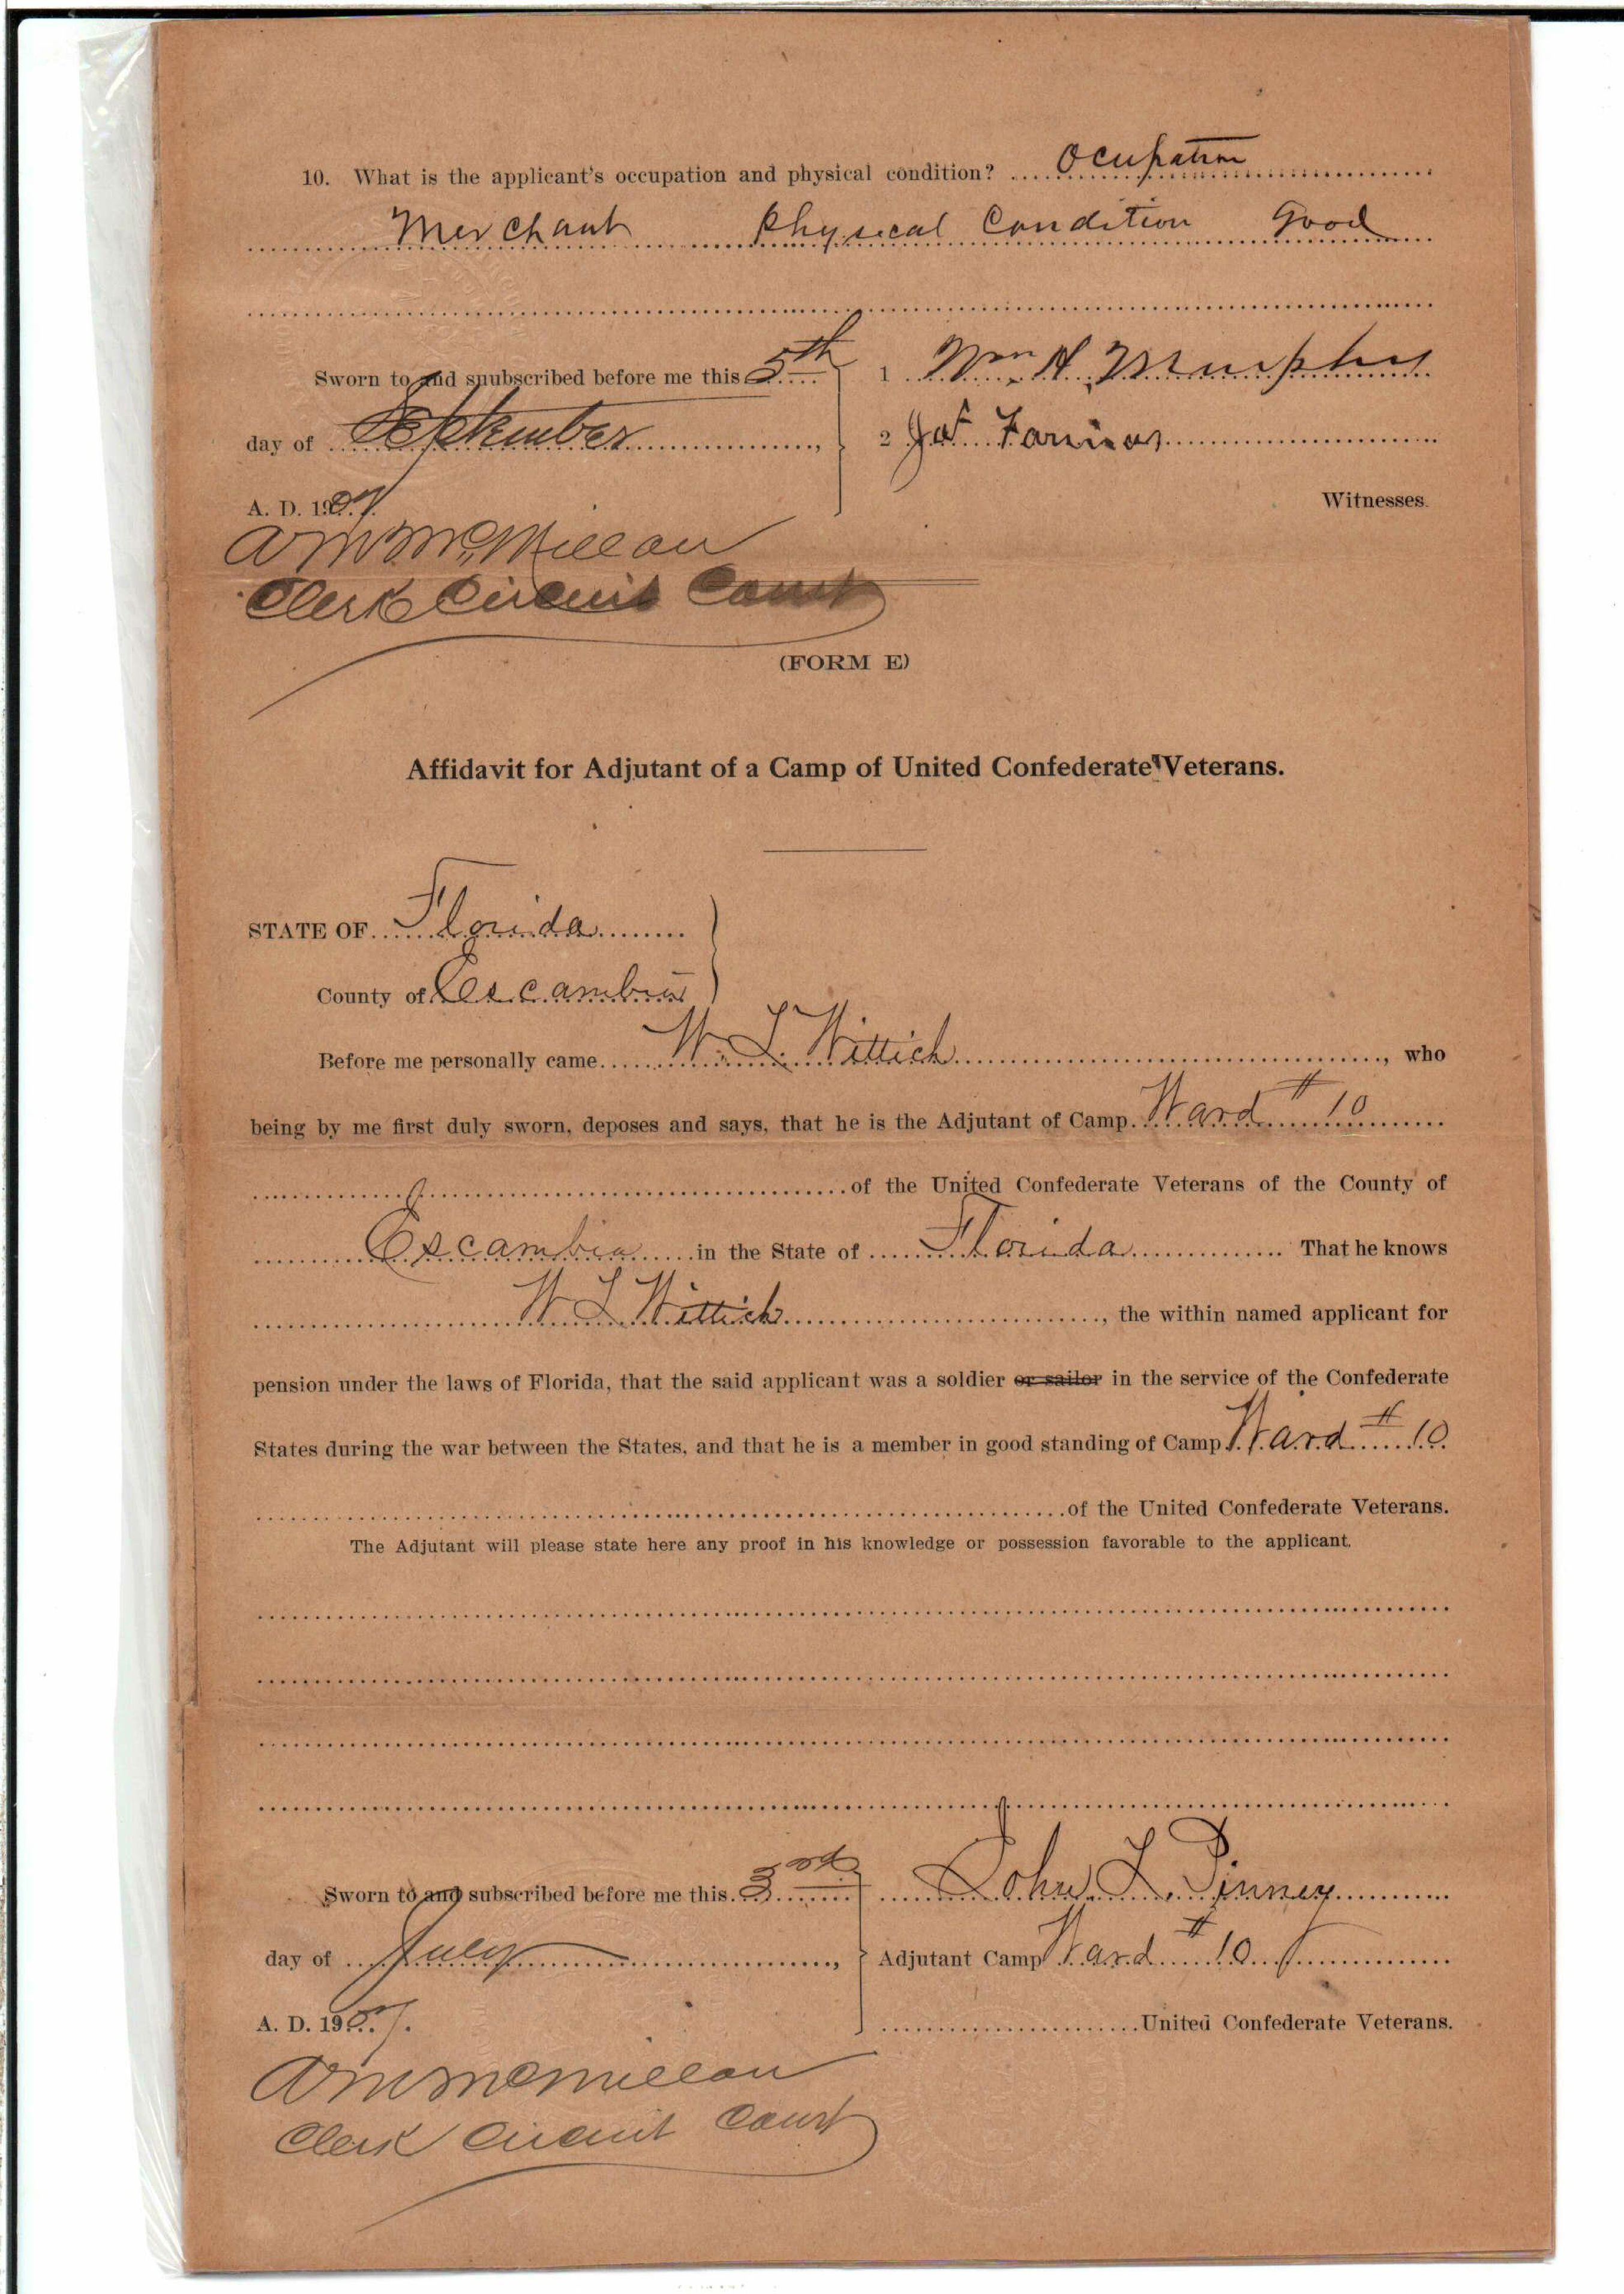 10. What is the applicant's occupation and physical condition? Ocupation
Merchant Physical Condition Good
Sworn to and snubscribed before me this 5th
day of September,
A. D. 1907.
1 Wm H. Murphy
2 Jos Farinas
Witnesses.
A M McMillan
Clerk Circuit Court
(FORM E)
Affidavit for Adjutant of a Camp of United Confederate Veterans.
STATE OF Florida
County of Escambia
Before me personally came W. L. Wittich, who
being by me first duly sworn, deposes and says, that he is the Adjutant of Camp Ward # 10
of the United Confederate Veterans of the County of
Escambia in the State of Florida That he knows
W L Wittich, the within named applicant for
pension under the laws of Florida, that the said applicant was a soldier or sailor in the service of the Confederate
States during the war between the States, and that he is a member in good standing of Camp Ward # 10
of the United Confederate Veterans.
The Adjutant will please state here any proof in his knowledge or possession favorable to the applicant.
Sworn to and subscribed before me this 3rd
day of July,
A. D. 1907.
John L. Pinney
Adjutant Camp Ward # 10
United Confederate Veterans.
A M McMillan
Clerk Circuit Court